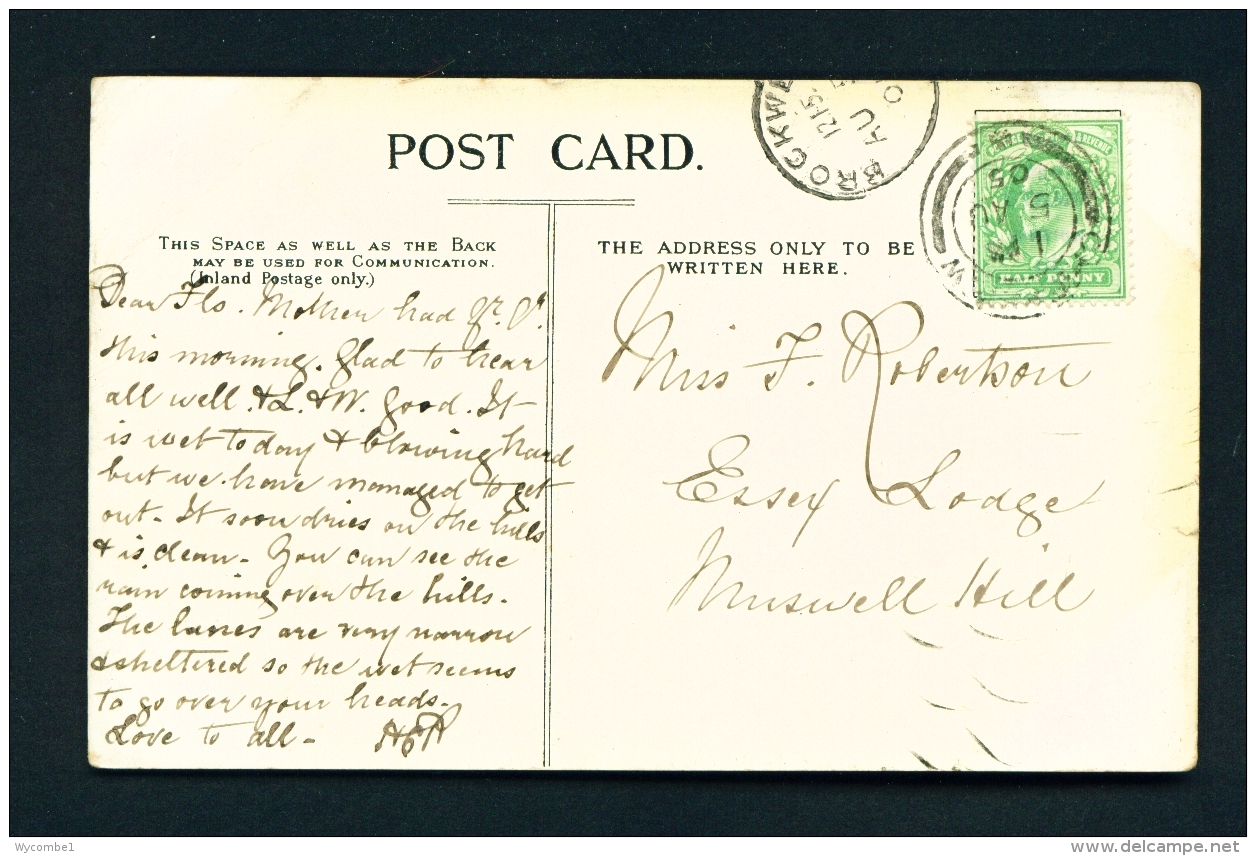 POST CARD.
THIS SPACE AS WELL AS THE BACK
MAY BE USED FOR COMMUNICATION.
(Inland Postage only.)
THE ADDRESS ONLY TO BE
WRITTEN HERE.
BROCKWE
12.15
AU
1
5
AU
05
HALF PENNY
Dear Flo. Mother had
this morning. Glad to hear
all well. & L. & W. good. It
is wet today & blowing hard
but we have managed to get
out - It soon dries on the hills
& is clean - You can see the
rain coming over the hills.
The lanes are very narrow
& sheltered so the wet seems
to go over your heads.
Love to all -
Miss F. Robertson
Essex Lodge
Muswell Hill
Wycombe1
www.delcampe.net